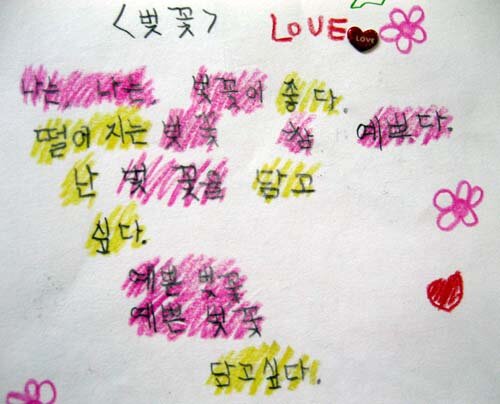 <벚꽃> LOVE LOVE
나는, 나는, 벚꽃이 좋다.
떨어지는 벚꽃 참 예쁘다.
난 벚꽃을 닮고
싶다.
예쁜 벚꽃
예쁜 벚꽃
닮고싶다.